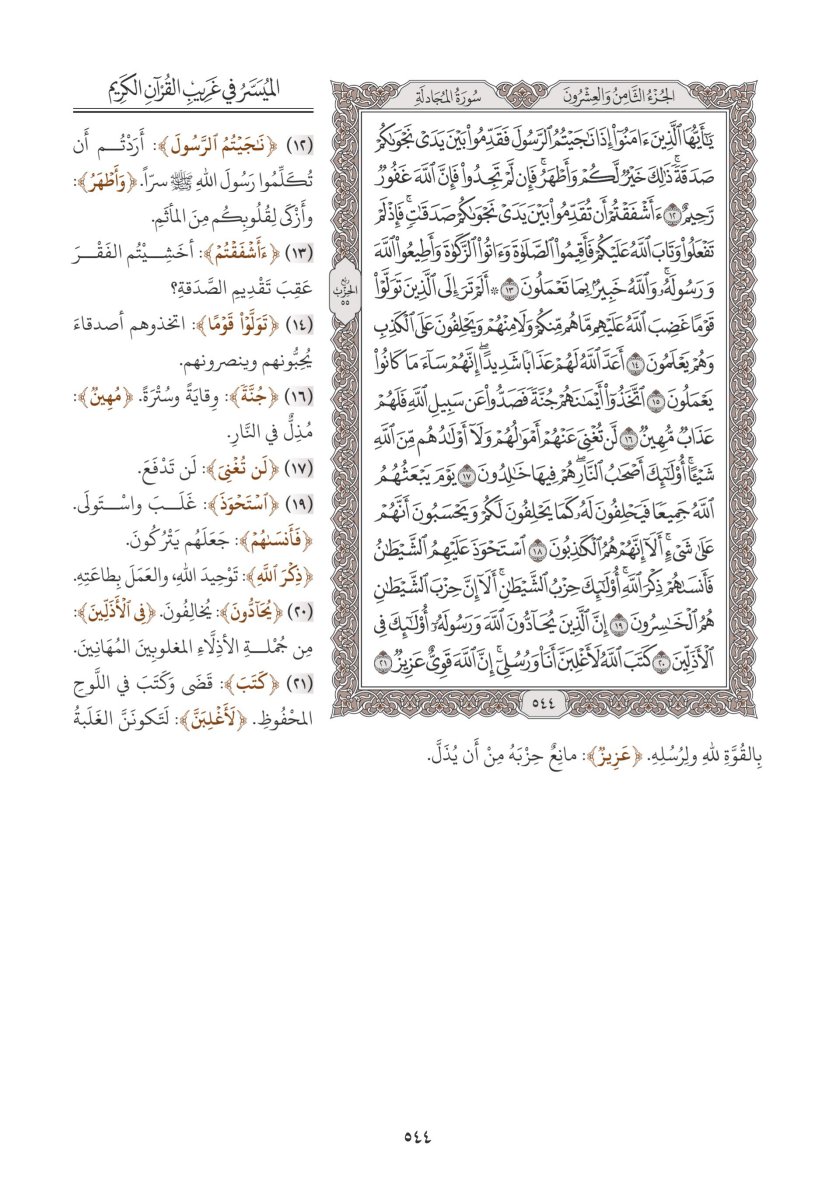 الجُزْءُ الثَّامِنُ وَالعِشْرُونَ
سُورَةُ المُجَادلَةِ
يَٰٓأَيُّهَا ٱلَّذِينَ ءَامَنُوٓاْ إِذَا نَٰجَيۡتُمُ ٱلرَّسُولَ فَقَدِّمُواْ بَيۡنَ يَدَيۡ نَجۡوَىٰكُمۡ
صَدَقَةٗۚ ذَٰلِكَ خَيۡرٞ لَّكُمۡ وَأَطۡهَرُۚ فَإِن لَّمۡ تَجِدُواْ فَإِنَّ ٱللَّهَ غَفُورٞ
رَّحِيمٌ ١٢ ءَأَشۡفَقۡتُمۡ أَن تُقَدِّمُواْ بَيۡنَ يَدَيۡ نَجۡوَىٰكُمۡ صَدَقَٰتٖۚ فَإِذۡ لَمۡ
تَفۡعَلُواْ وَتَابَ ٱللَّهُ عَلَيۡكُمۡ فَأَقِيمُواْ ٱلصَّلَوٰةَ وَءَاتُواْ ٱلزَّكَوٰةَ وَأَطِيعُواْ ٱللَّهَ
وَرَسُولَهُۥۚ وَٱللَّهُ خَبِيرُۢ بِمَا تَعۡمَلُونَ ١٣ ۞ أَلَمۡ تَرَ إِلَى ٱلَّذِينَ تَوَلَّوۡاْ
قَوۡمًا غَضِبَ ٱللَّهُ عَلَيۡهِم مَّا هُم مِّنكُمۡ وَلَا مِنۡهُمۡ وَيَحۡلِفُونَ عَلَى ٱلۡكَذِبِ
وَهُمۡ يَعۡلَمُونَ ١٤ أَعَدَّ ٱللَّهُ لَهُمۡ عَذَابٗا شَدِيدًاۖ إِنَّهُمۡ سَآءَ مَا كَانُواْ
يَعۡمَلُونَ ١٥ ٱتَّخَذُوٓاْ أَيۡمَٰنَهُمۡ جُنَّةٗ فَصَدُّواْ عَن سَبِيلِ ٱللَّهِ فَلَهُمۡ
عَذَابٞ مُّهِينٞ ١٦ لَّن تُغۡنِيَ عَنۡهُمۡ أَمۡوَٰلُهُمۡ وَلَآ أَوۡلَٰدُهُم مِّنَ ٱللَّهِ
شَيۡـًٔاۚ أُوْلَٰٓئِكَ أَصۡحَٰبُ ٱلنَّارِۖ هُمۡ فِيهَا خَٰلِدُونَ ١٧ يَوۡمَ يَبۡعَثُهُمُ
ٱللَّهُ جَمِيعٗا فَيَحۡلِفُونَ لَهُۥ كَمَا يَحۡلِفُونَ لَكُمۡ وَيَحۡسَبُونَ أَنَّهُمۡ
عَلَىٰ شَيۡءٍۚ أَلَآ إِنَّهُمۡ هُمُ ٱلۡكَٰذِبُونَ ١٨ ٱسۡتَحۡوَذَ عَلَيۡهِمُ ٱلشَّيۡطَٰنُ
فَأَنسَىٰهُمۡ ذِكۡرَ ٱللَّهِۚ أُوْلَٰٓئِكَ حِزۡبُ ٱلشَّيۡطَٰنِۚ أَلَآ إِنَّ حِزۡبَ ٱلشَّيۡطَٰنِ
هُمُ ٱلۡخَٰسِرُونَ ١٩ إِنَّ ٱلَّذِينَ يُحَآدُّونَ ٱللَّهَ وَرَسُولَهُۥٓ أُوْلَٰٓئِكَ فِي
ٱلۡأَذَلِّينَ ٢٠ كَتَبَ ٱللَّهُ لَأَغۡلِبَنَّ أَنَا۠ وَرُسُلِيٓۚ إِنَّ ٱللَّهَ قَوِيٌّ عَزِيزٞ ٢١
ربع
الحزب
٥٥
٥٤٤
المُيَسَّرُ في غَرِيبِ القُرْآنِ الكَرِيم
(١٢) ﴿نَٰجَيۡتُمُ ٱلرَّسُولَ﴾: أَرَدْتُم أَن
تُكَلِّمُوا رَسُولَ اللهِ ﷺ سرّاً. ﴿وَأَطۡهَرُ﴾:
وأَزْكَى لِقُلُوبِكُم مِنَ المأثَمِ.
(١٣) ﴿ءَأَشۡفَقۡتُمۡ﴾: أخَشِيْتُم الفَقْرَ
عَقِبَ تَقْدِيمِ الصَّدَقةِ؟
(١٤) ﴿تَوَلَّوۡاْ قَوۡمًا﴾: اتخذوهم أصدقاءَ
يُحِبُّونهم وينصرونهم.
(١٦) ﴿جُنَّةٗ﴾: وِقايَةً وسُتْرَةً. ﴿مُهِينٞ﴾:
مُذِلٌّ في النَّارِ.
(١٧) ﴿لَن تُغۡنِيَ﴾: لَن تَدْفَعَ.
(١٩) ﴿ٱسۡتَحۡوَذَ﴾: غَلَبَ واسْتَولَى.
﴿فَأَنسَىٰهُمۡ﴾: جَعَلَهُم يَتْرُكُونَ.
﴿ذِكۡرَ ٱللَّهِ﴾: تَوْحِيدَ اللهِ والعَمَلَ بِطاعَتِهِ.
(٢٠) ﴿يُحَآدُّونَ﴾: يُخالِفُونَ. ﴿فِي ٱلۡأَذَلِّينَ﴾:
مِن جُمْلةِ الأذِلَّاءِ المغلوبِينَ المُهَانِينَ.
(٢١) ﴿كَتَبَ﴾: قَضَى وَكَتَبَ في اللَّوحِ
المحْفُوظِ. ﴿لَأَغۡلِبَنَّ﴾: لَتَكونَنَّ الغَلَبةُ
بِالقُوَّةِ للهِ ولِرُسُلِهِ. ﴿عَزِيزٞ﴾: مانِعٌ حِزْبَهُ مِنْ أَن يُذَلَّ.
٥٤٤